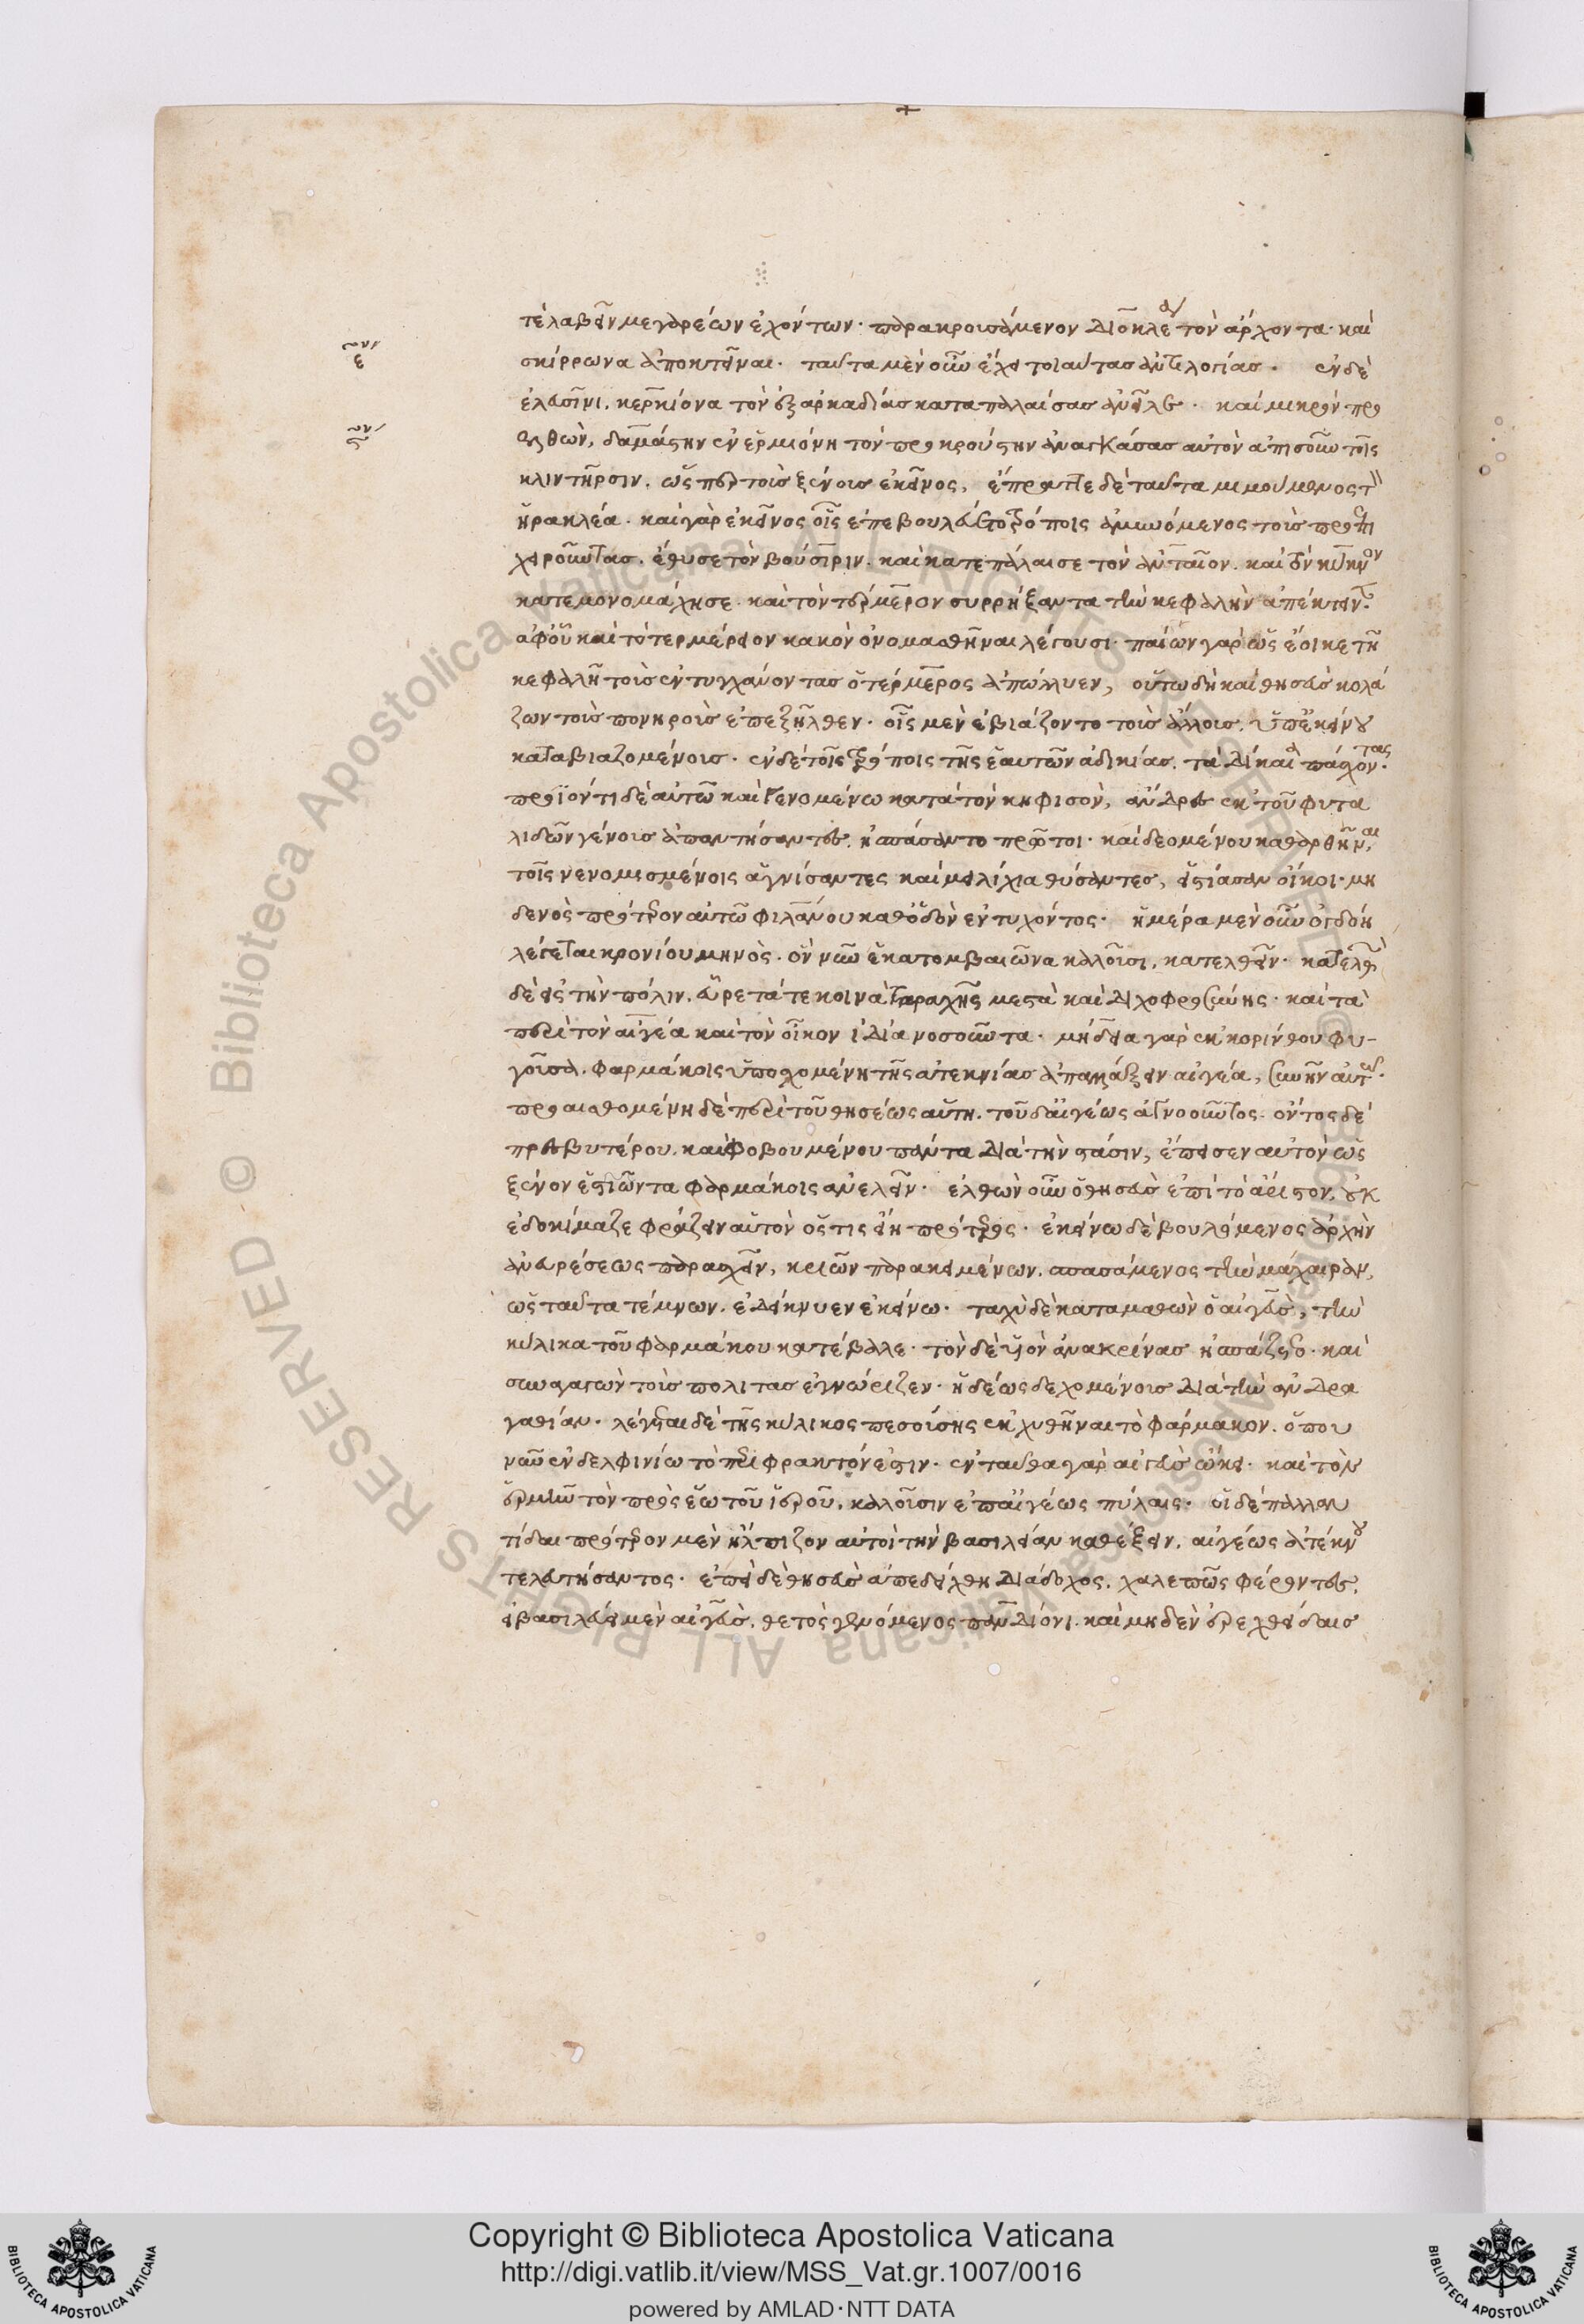 τε λαβεῖν μεγαρέων ἐχόντων· παρακρουσάμενον διοκλέα τὸν ἄρχοντα· καὶ
σκίρρωνα ἀποκτεῖναι. ταῦτα μὲν οὖν ἔχει τοιαύτας ἀντιλογίας. ἐν δὲ
ἐλευσῖνι, κερκίονα τὸν ἐξ ἀρκαδίας καταπαλαίσας ἀνεῖλε. καὶ μικρὸν προ
ελθὼν, δαμάστην ἐν ἑρμιόνη τὸν προκρούστην ἀναγκάσας αὐτὸν ἀπισοῦν τοῖς
κλιντῆρσιν, ὥσπερ τοὺς ξένους ἐκεῖνος, ἔπραττε δὲ ταῦτα μιμούμενος τὸν
ἡρακλέα. καὶ γὰρ ἐκεῖνος οἷς ἐπεβουλεύετο τρόποις ἀμυνόμενος τοὺς προεπι
χειροῦντας, ἔθυσε τὸν βούσιριν, καὶ κατεπάλαισε τὸν ἀνταῖον, καὶ τὸν κύκνον
κατεμονομάχησε, καὶ τὸν τέρμερον συρρήξαντα τὴν κεφαλὴν ἀπέκτεινεν.
ἀφ' οὗ καὶ τὸ τερμέρειον κακὸν ὀνομασθῆναι λέγουσι· παίων γὰρ ὡς ἔοικε τῆ
κεφαλῆ τοὺς ἐντυγχάνοντας ὁ τέρμερος ἀπώλλυεν, οὕτω δὴ καὶ θησεὺς κολά
ζων τοὺς πονηροὺς ἐπεξῆλθεν· οἷς μὲν ἐβιάζοντο τοὺς ἄλλους, ὑπ' ἐκείνου
καταβιαζομένους· ἐν δὲ τοῖς τρόποις τῆς ἑαυτῶν ἀδικίας, τὰ δίκαια πάσχοντας.
προϊόντι δὲ αὐτῶ καὶ γενομένω κατὰ τὸν κηφισὸν, ἄνδρες ἐκ τοῦ φυτα
λιδῶν γένους ἀπαντήσαντες, ἠσπάσαντο πρῶτοι· καὶ δεομένου καθαρθῆναι,
τοῖς νενομισμένοις ἁγνίσαντες καὶ μειλίχια θύσαντες, εἱστίασαν οἴκοι· μη
δενὸς πρότερον αὐτῶ φιλανθρώπου καθ' ὁδὸν ἐντυχόντος. ἡμέρα μὲν οὖν ὀγδόη
λέγεται κρονίου μηνὸς, ὃν νῦν ἑκατομβαιῶνα καλοῦσι, κατελθεῖν. κατελθὼν
δὲ εἰς τὴν πόλιν, εὗρε τά τε κοινὰ ταραχῆς μεστὰ καὶ διχοφροσύνης· καὶ τὰ
περὶ τὸν αἰγέα καὶ τὸν οἶκον ἰδία νοσοῦντα· μήδεια γὰρ ἐκ κορίνθου φυ-
γοῦσα, φαρμάκοις ὑποσχομένη τῆς ἀτεκνίας ἀπαλλάξειν αἰγέα, συνῆν αὐτῶ.
προαισθομένη δὲ περὶ τοῦ θησέως αὕτη, τοῦ δ' αἰγέως ἀγνοοῦντος, ὄντος δὲ
πρεσβυτέρου, καὶ φοβουμένου πάντα διὰ τὴν στάσιν, ἔπεισεν αὐτὸν ὡς
ξένον ἑστιῶντα φαρμάκοις ἀνελεῖν. ἐλθὼν οὖν ὁ θησεὺς ἐπὶ τὸ ἄριστον, οὐκ
ἐδοκίμαζε φράζειν αὑτὸν ὅστις εἴη πρότερος· ἐκείνω δὲ βουλόμενος ἀρχὴν
ἀνευρέσεως παρασχεῖν, κρεῶν παρακειμένων, σπασάμενος τὴν μάχαιραν,
ὡς ταύτα τέμνων, ἐδείκνυεν ἐκείνω. ταχὺ δὲ καταμαθὼν ὁ αἰγεὺς, τὴν
κύλικα τοῦ φαρμάκου κατέβαλε· τὸν δὲ υἱὸν ἀνακρίνας ἠσπάζετο. καὶ
συναγαγὼν τοὺς πολίτας ἐγνώριζεν· ἡδέως δεχομένους διὰ τὴν ἀνδρα
γαθίαν. λέγεται δὲ τῆς κύλικος πεσούσης ἐκχυθῆναι τὸ φάρμακον, ὅπου
νῦν ἐν δελφινίω τὸ περίφρακτόν ἐστιν. ἐνταῦθα γὰρ αἰγεὺς ὤκει. καὶ τὸν
ἑρμῆν τὸν πρὸς ἕω τοῦ ἱεροῦ, καλοῦσιν ἐπ' αἰγέως πύλαις. οἱ δὲ παλλαν
τίδαι πρότερον μὲν ἤλπιζον αὐτοὶ τὴν βασιλείαν καθέξειν, αἰγέως ἀτέκνου
τελευτήσαντος. ἐπεὶ δὲ θησεὺς ἀπεδείχθη διάδοχος, χαλεπῶς φέροντες,
εἰ βασιλεύει μὲν αἰγεὺς, θετὸς γενόμενος πανδίονι, καὶ μηδὲν ἐρεχθείδαις